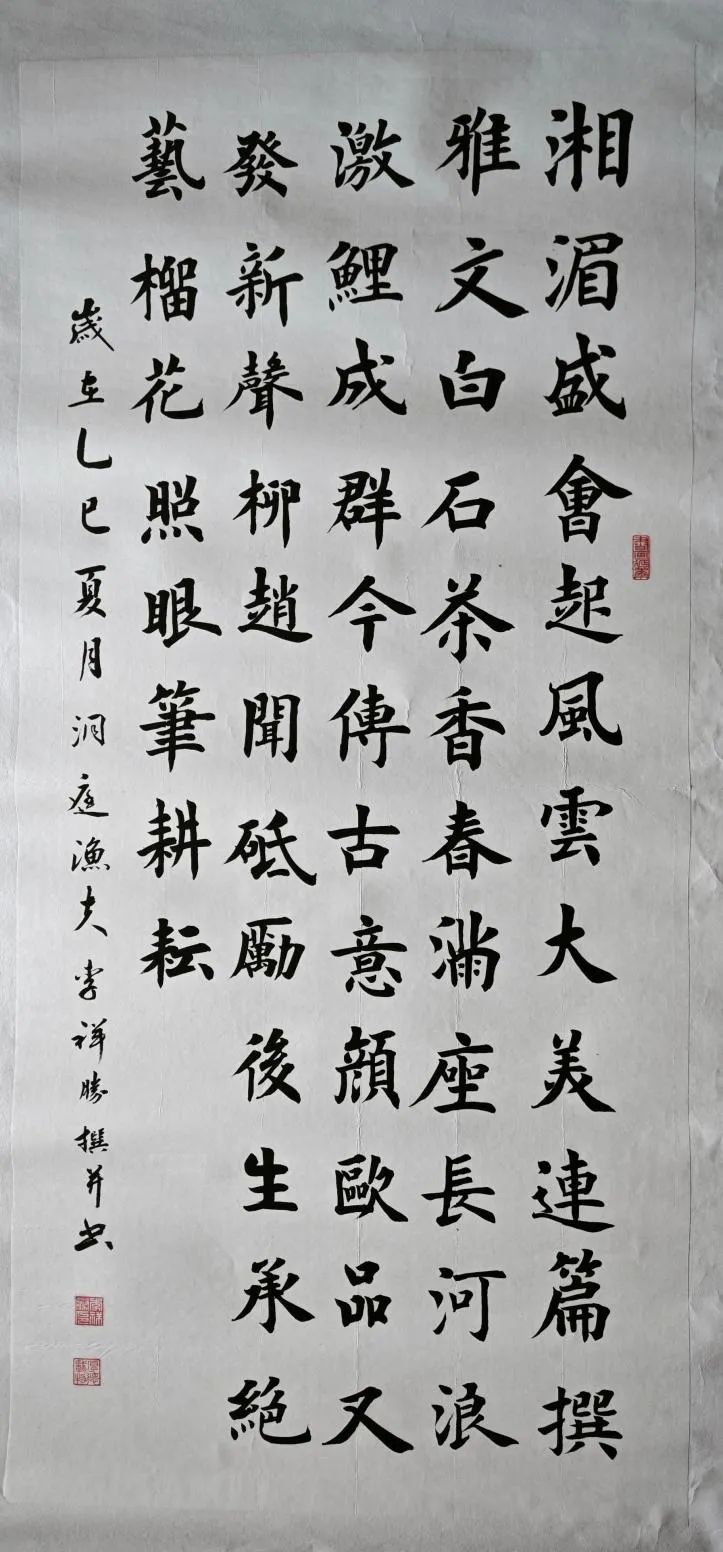 湘湄盛會起風雲大美連篇撰
雅文白石茶香春滿座長河浪
激鯉成群今傳古意顔歐品又
發新聲柳趙聞砥勵後生承絕
藝榴花照眼筆耕耘
歲在乙巳夏月洞庭漁夫李祥勝撰并书